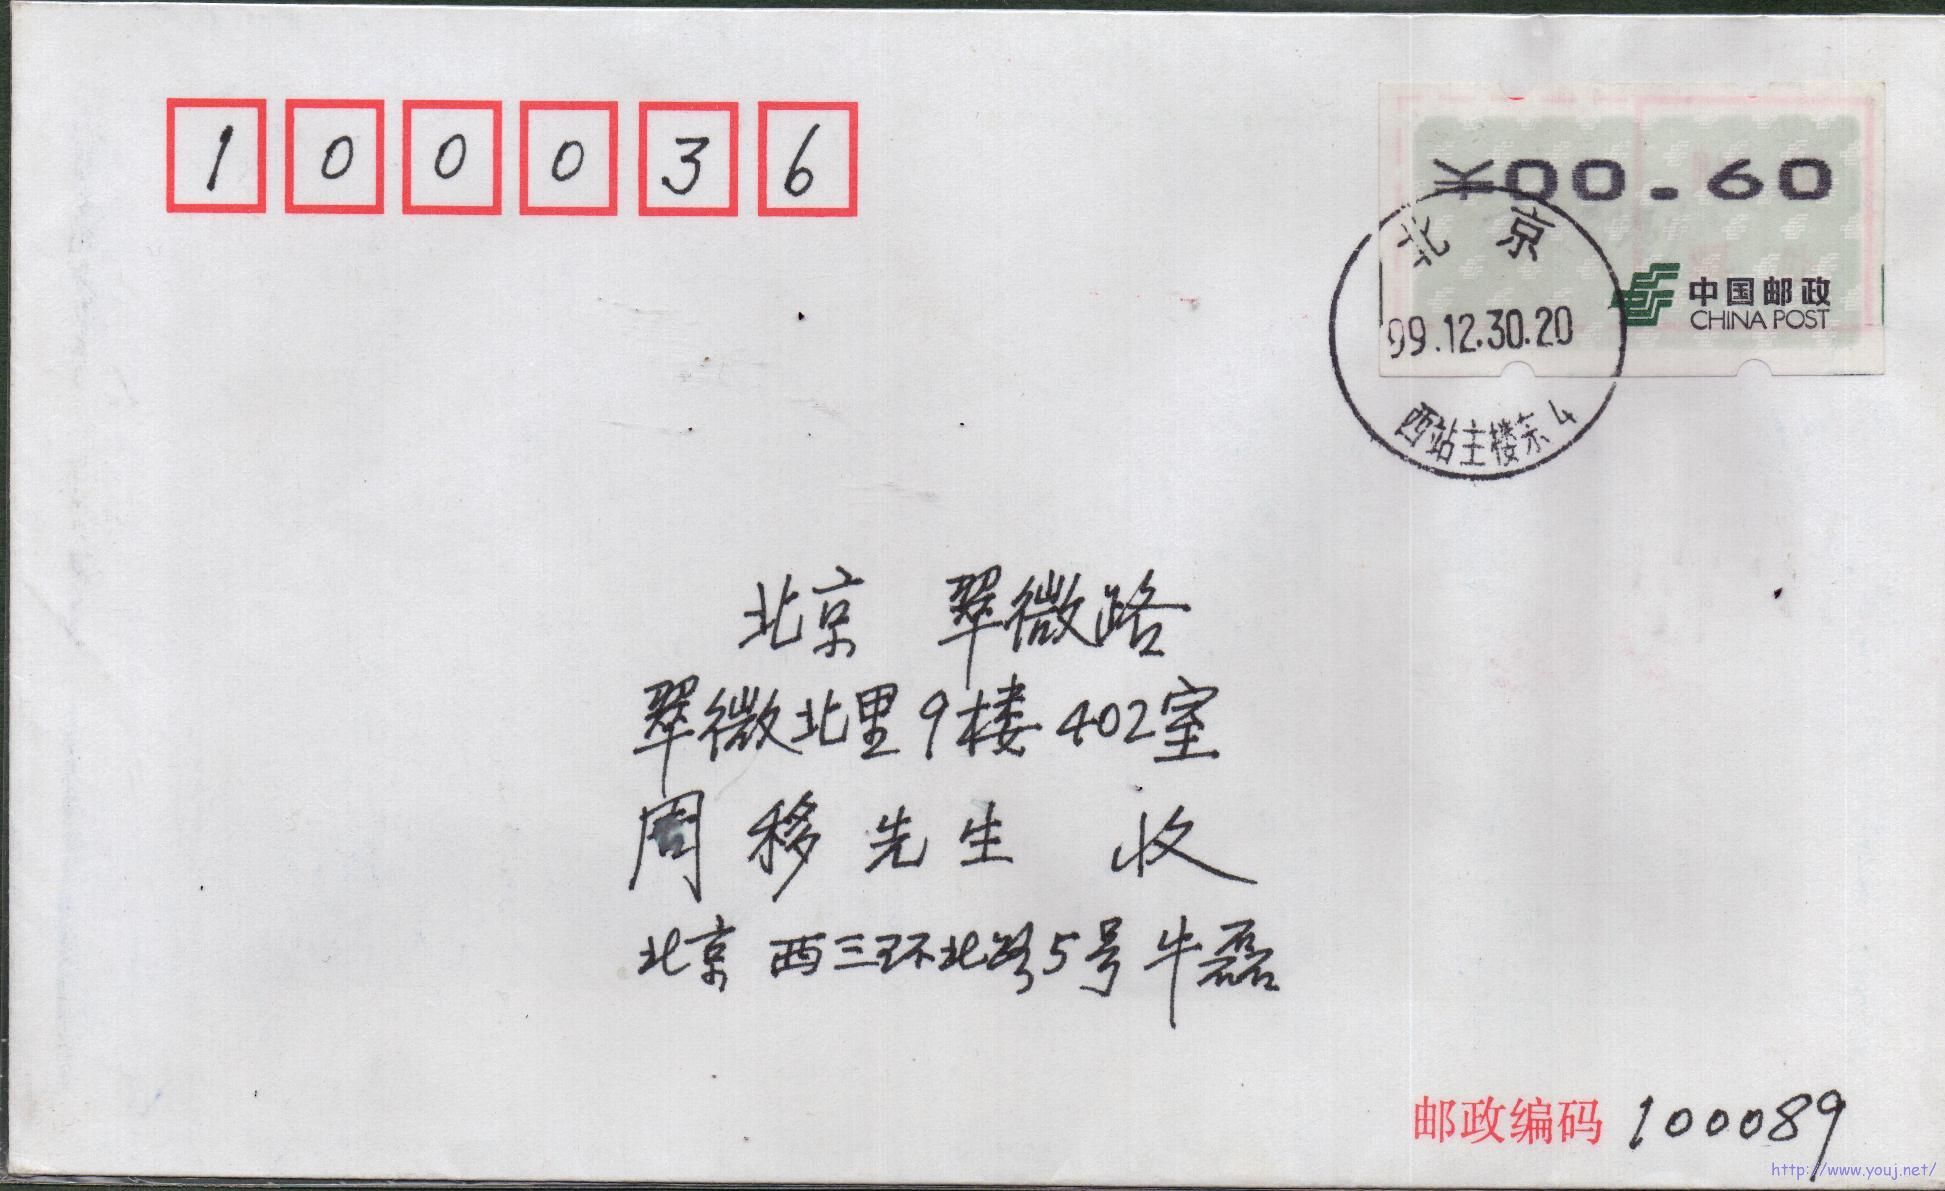 100036
¥00.60
中国邮政
CHINA POST
北京
99.12.30.20
西站主楼东4
北京 翠微路
翠微北里9楼402室
周移先生 收
北京西三环北路5号牛磊
邮政编码 100089
http://www.youj.net/